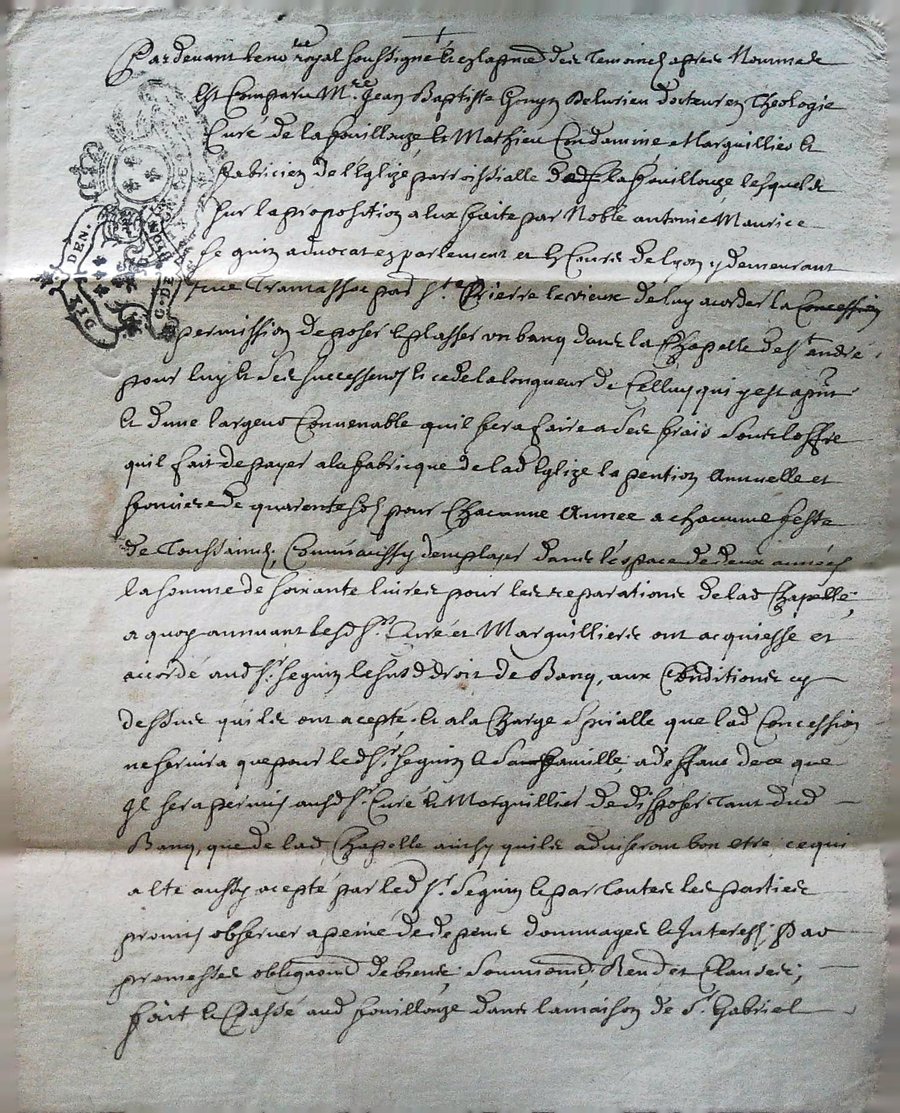 Pardevant le no.re royal soussigné et en la pnce des Temoins apres Nommes
Est Comparu M.re Jean Baptiste Gonyn Delurieu docteur en Theologie
Curé de la fouillouze, et Mathieu Condamine Marguillier et
fabricien de l'Eglize parroissialle de la fouillouze lesquels
sur la proposition a eux faite par Noble antoine Maurice
Seguin advocat en parlement et es Cours de Lyon y demeurant
rue Tramassac parr. St. Pierre le vieux de luy acorder la Concession
permission de poser et plasser un banq dans la Chapelle de St. andré
pour luy et ses successeurs et ce de la longueur de Celluy qui y est a pnt
et d'une largeur Convenable quil fera faire a ses frais sous l'offre
quil fait de payer a la fabricque de lad Eglize la pention annuelle et
fonciere de quarente sols pour Chacunne Année a chacunne feste
de Toussaincts, Comm'aussy d'employer dans l'espace de deux années
la somme de soixante livres pour les reparations de lad Chapelle,
a quoy annuant lesd Srs. Curé et Marguilliers ont acquiessé et
accordé aud Sr. Seguin le susd droit de Banq, aux Conditions cy
dessus quils ont acepté, et a la Charge espcialle que lad Concession
ne servira que pour led Sr. Seguin et sa famille, a deffaut de ce que
Il sera permis ausd Srs. Curé et Marguillier de disposer Tant dud
Banq, que de lad Chapelle ainsy quils adviseront bon etre, ce qui
a été aussy acepté par led Sr. Seguin et par toutes les parties
promis observer a peine de depens dommages et Interests, Par
promesses obligaons de biens, Soumions, Renons et Clauses;
fait et Passé aud fouillouze dans la maison de Sr. Gabriel